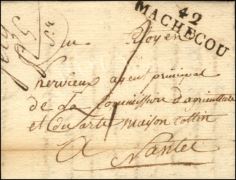 42
MACHECOU
au Citoyen
agent principal
de La Commission d'agriculture
et des arts maison Cottin
A Nantes